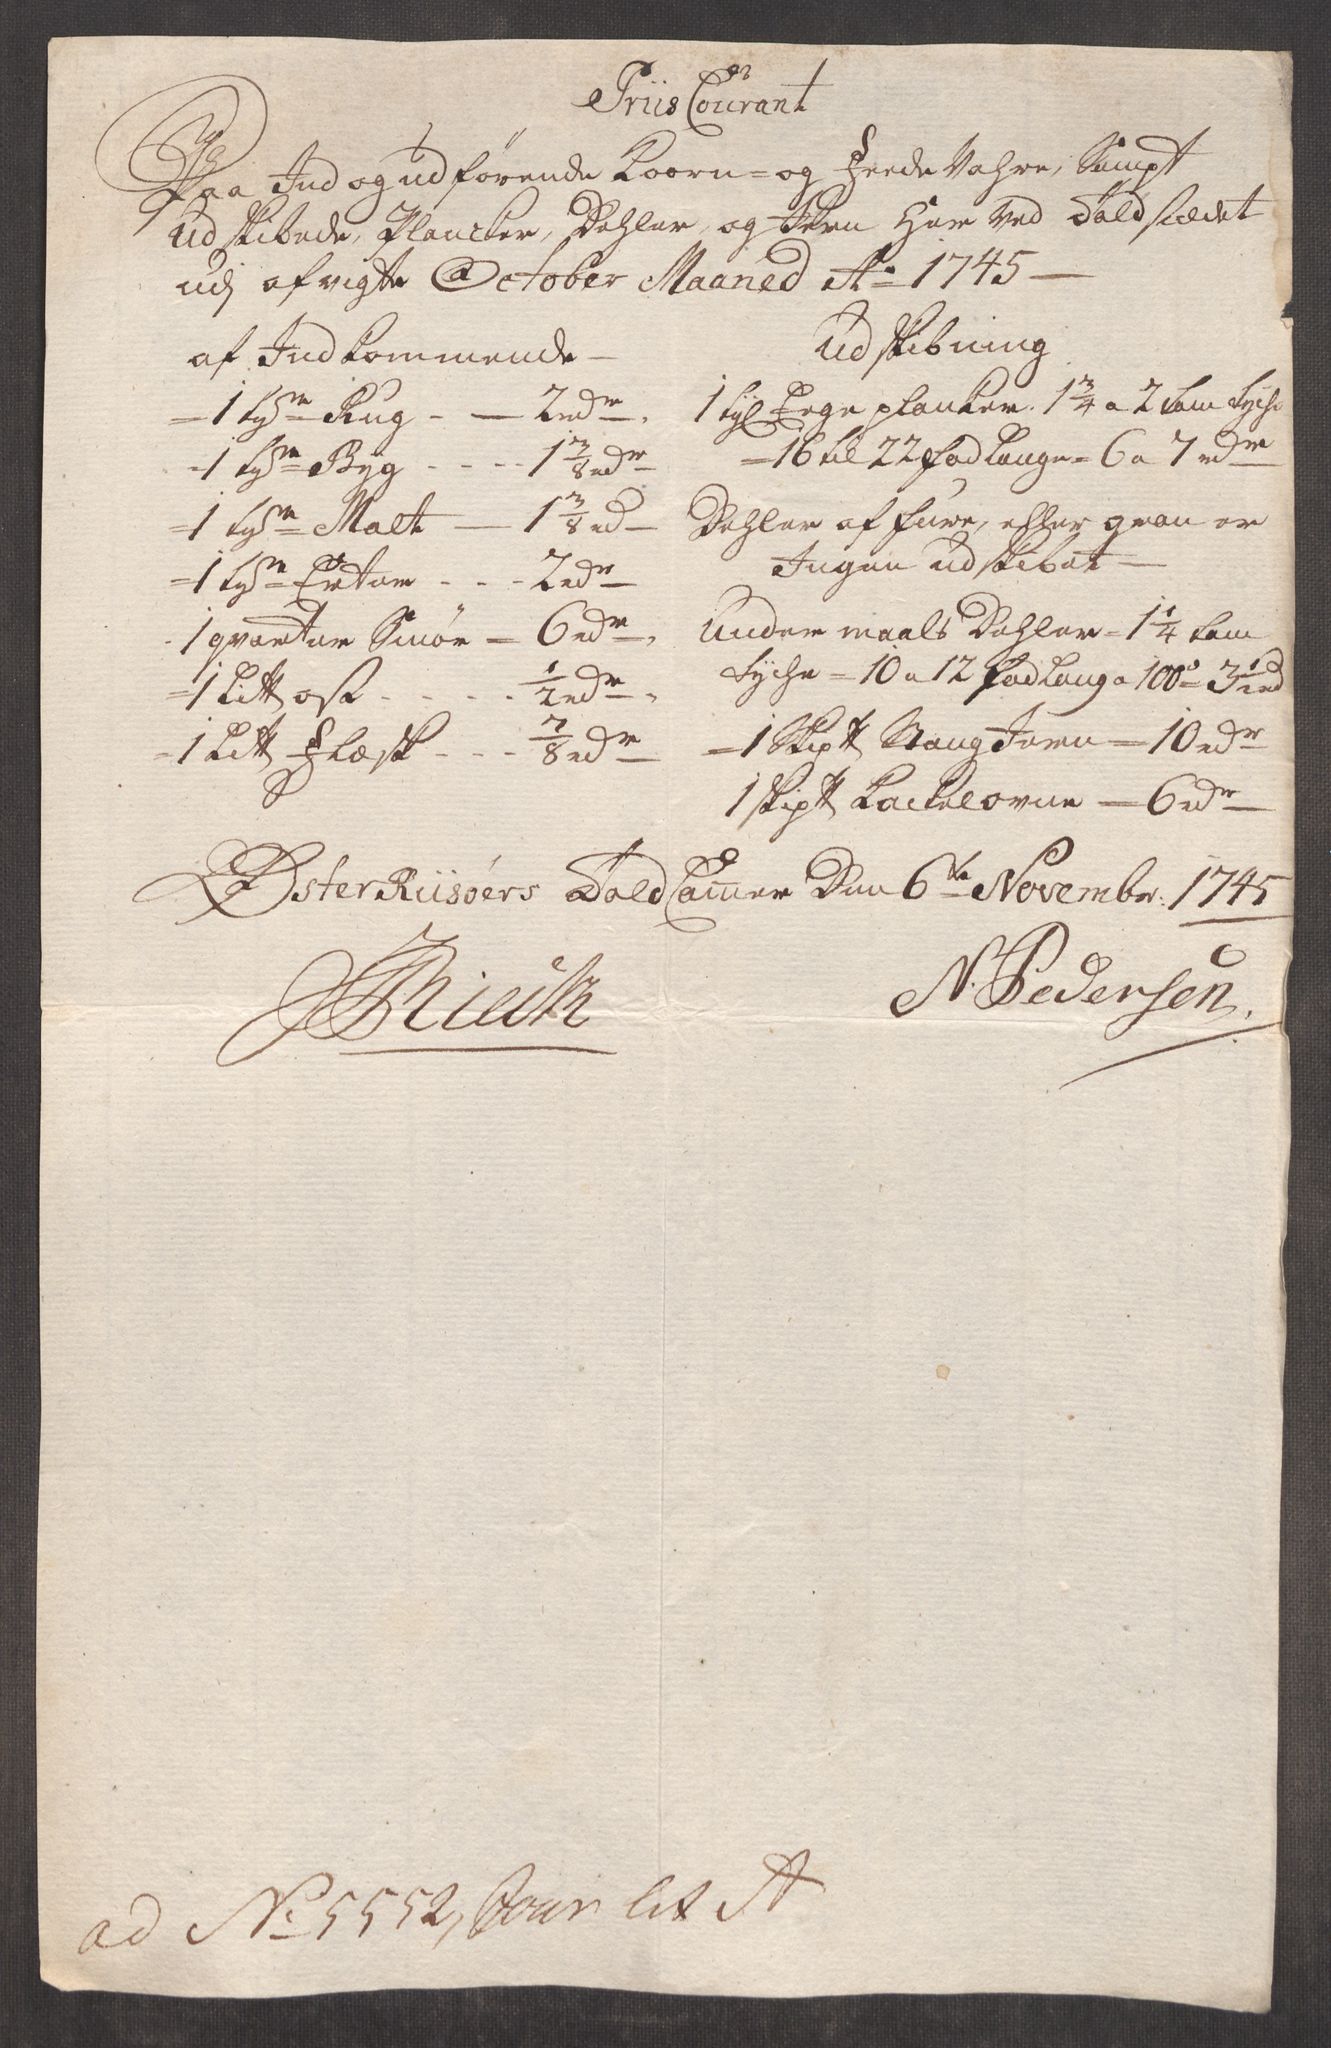 Priis Courant
Paa Ind og udførende Koorn= og Feede Vahre, Sampt
Udskibede, Plancker, Dehler, og Jern Her Ved Toldstædet
udj afvigte October Maaned Ao 1745
af Indkommende
1 tdr Rug - 2 rdr
1 tdr Byg - 1 3/8 rdr
1 tdr Malt - 1 3/8 rd
1 tdr Erter - 2 rdr
1 qvarter Smør - 6 rdr
1 Litt ost - 1/2 rdr
1 Litt Flæsk - 7/8 rdr
Udskibning
1 tyl Eege planker. 1 3/4 a 2 tom tyche
16 til 22 fod lange = 6 a 7 rdr
Dehler af fure, eller gran er
Ingen udskibet
Under maals Dehler = 1 1/4 tom
tyche = 10 a 12 fod lang a 100 = 3 1/2 rd
1 Skipt Stang Jern - 10 rdr
1 skipt Kackelovne - 6 rdr
ØsterRiisøers Told Camer Den 6te Novembr. 1745
N. Pedersen
ad No 5552, Jour lit A